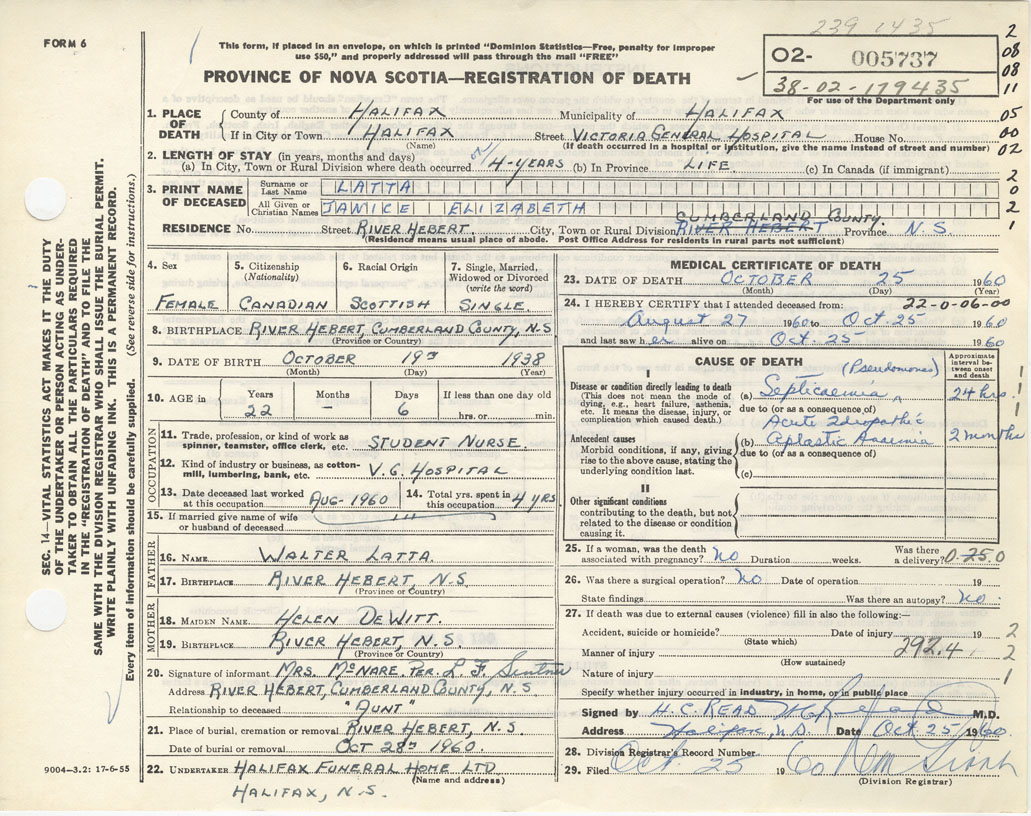 239 1435
FORM 6
This form, if placed in an envelope, on which is printed "Dominion Statistics—Free, penalty for improper
use $50," and properly addressed will pass through the mail "FREE"
PROVINCE OF NOVA SCOTIA—REGISTRATION OF DEATH
02- 005737
38-02-179435
For use of the Department only
2
08
08
11
05
00
02
2
0
2
1
1. PLACE OF DEATH County of HALIFAX Municipality of HALIFAX
If in City or Town HALIFAX Street VICTORIA GENERAL HOSPITAL House No.
(Name) (If death occurred in a hospital or institution, give the name instead of street and number)
2. LENGTH OF STAY (in years, months and days)
(a) In City, Town or Rural Division where death occurred 4-YEARS (b) In Province LIFE (c) In Canada (if immigrant)
3. PRINT NAME OF DECEASED Surname or Last Name LATTA
All Given or Christian Names JANICE ELIZABETH
CUMBERLAND COUNTY.
RESIDENCE No. Street RIVER HEBERT. City, Town or Rural Division RIVER HEBERT Province N.S.
(Residence means usual place of abode. Post Office Address for residents in rural parts not sufficient)
4. Sex 5. Citizenship (Nationality) 6. Racial Origin 7. Single, Married, Widowed or Divorced (write the word)
FEMALE CANADIAN SCOTTISH SINGLE.
8. BIRTHPLACE RIVER HEBERT CUMBERLAND COUNTY, N.S
(Province or Country)
9. DATE OF BIRTH OCTOBER 19 1938
(Month) (Day) (Year)
10. AGE in Years Months Days If less than one day old
22 – 6 hrs. or min.
OCCUPATION
11. Trade, profession, or kind of work as
spinner, teamster, office clerk, etc. STUDENT NURSE
12. Kind of industry or business, as cotton-
mill, lumbering, bank, etc. V.G. HOSPITAL
13. Date deceased last worked at this occupation AUG-1960 14. Total yrs. spent in this occupation 4 YRS
15. If married give name of wife
or husband of deceased
FATHER
16. NAME WALTER LATTA.
17. BIRTHPLACE RIVER HEBERT, N.S.
(Province or Country)
MOTHER
18. MAIDEN NAME HELEN DEWITT.
19. BIRTHPLACE RIVER HEBERT, N.S.
(Province or Country)
20. Signature of informant MRS. MCNARE. PER. L. F.
Address RIVER HEBERT, CUMBERLAND COUNTY, N.S
Relationship to deceased "AUNT"
21. Place of burial, cremation or removal RIVER HEBERT, N.S
Date of burial or removal OCT 28 1960.
22. UNDERTAKER HALIFAX FUNERAL HOME LTD
(Name and address)
HALIFAX, N.S.
MEDICAL CERTIFICATE OF DEATH
23. DATE OF DEATH OCTOBER 25 1960
(Month) (Day) (Year)
24. I HEREBY CERTIFY that I attended deceased from: 22-0-06-00
August 27 1960 to Oct. 25 1960
and last saw her alive on Oct. 25 1960
CAUSE OF DEATH
Approximate interval between onset and death
I
(Pseudomonas)
Disease or condition directly leading to death (a) Septicaemia 24 hrs.
(This does not mean the mode of
dying, e.g., heart failure, asthenia,
etc. It means the disease, injury, or
complication which caused death.)
due to (or as a consequence of)
Acute Idiopathic
Antecedent causes (b) Aplastic Anaemia 2 months
Morbid conditions, if any, giving
rise to the above cause, stating the
underlying condition last.
due to (or as a consequence of)
(c)
II
Other significant conditions
contributing to the death, but not
related to the disease or condition
causing it.
25. If a woman, was the death
associated with pregnancy? No Duration weeks. Was there a delivery? 0.25.0
26. Was there a surgical operation? No Date of operation 19
State findings Was there an autopsy? No.
27. If death was due to external causes (violence) fill in also the following:—
Accident, suicide or homicide? Date of injury 19
(State which)
292.4
Manner of injury
(How sustained)
Nature of injury
Specify whether injury occurred in industry, in home, or in public place
Signed by H.C. READ M.D.
Address Halifax, N.S. Date Oct 25 1960.
28. Division Registrar's Record Number
29. Filed Oct 25 1960
(Division Registrar)
1
1
1
2
2
1
SEC. 14—VITAL STATISTICS ACT MAKES IT THE DUTY
OF THE UNDERTAKER OR PERSON ACTING AS UNDER-
TAKER TO OBTAIN ALL THE PARTICULARS REQUIRED
IN THE "REGISTRATION OF DEATH" AND TO FILE THE
SAME WITH THE DIVISION REGISTRAR WHO SHALL ISSUE THE BURIAL PERMIT.
WRITE PLAINLY WITH UNFADING INK. THIS IS A PERMANENT RECORD.
Every item of information should be carefully supplied. (See reverse side for instructions.)
9004-3.2: 17-6-55